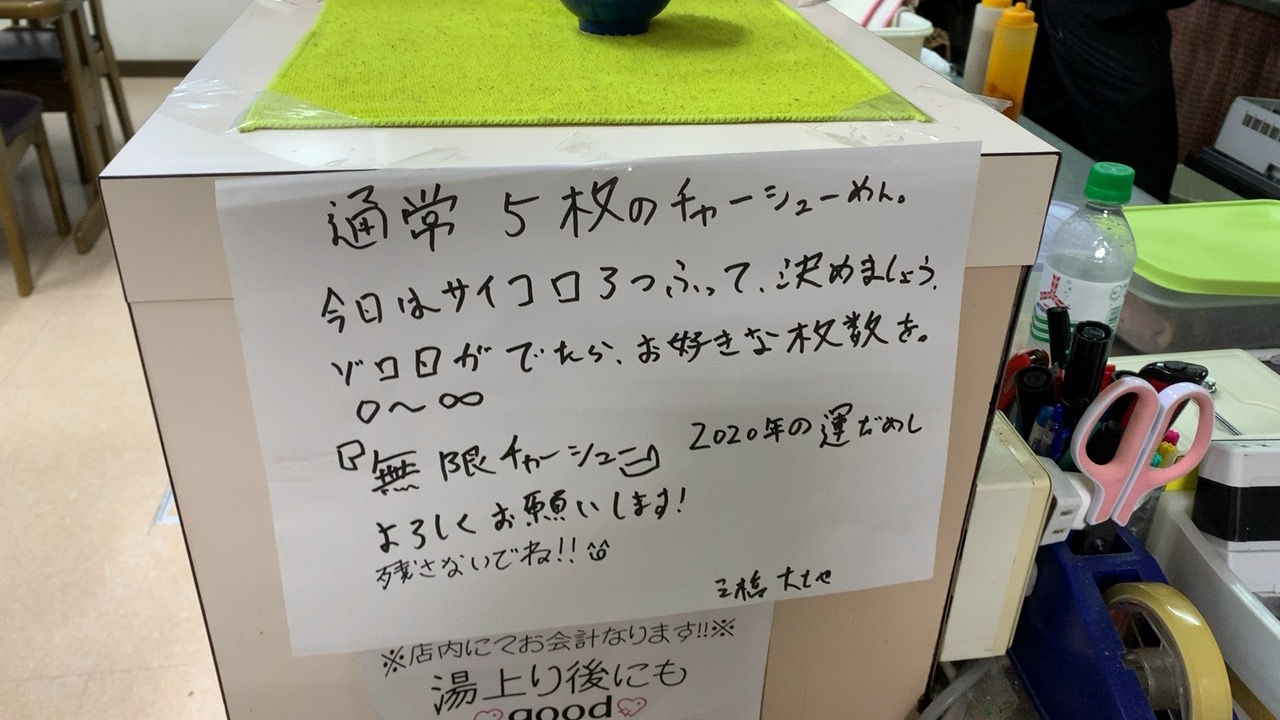 通常 5枚のチャーシューめん。
今日はサイコロ3つふって、決めましょう。
ゾロ目がでたら、お好きな枚数を。
0〜∞
『無限チャーシュー』 2020年の運だめし
よろしくお願いします!
残さないでね!!
三橋 大地
※店内にてお会計なります!!※
湯上り後にも
good